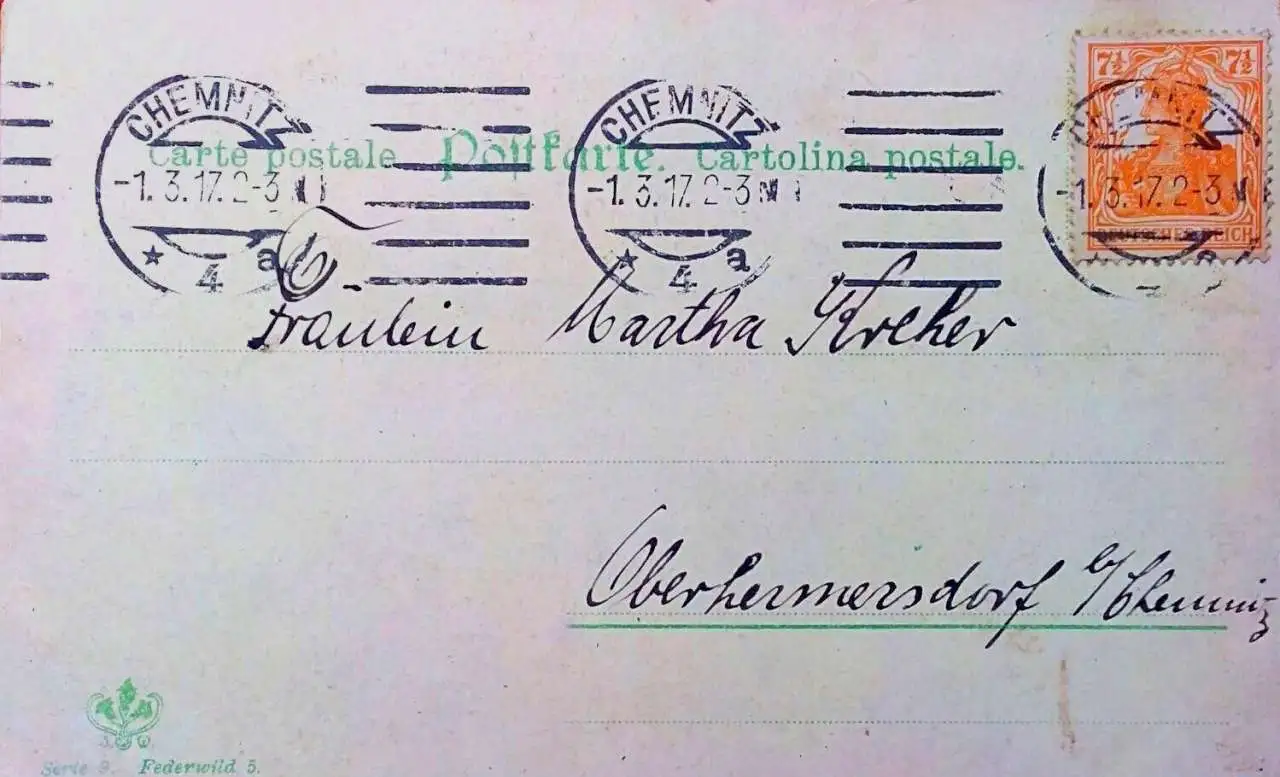 7½ 7½
CHEMNITZ CHEMNITZ CHEMNITZ
Carte postale Postkarte. Cartolina postale.
-1.3.17. 2-3 N -1.3.17. 2-3 N -1.3.17. 2-3 N
DEUTSCHES REICH
* 4 a * 4 a
Fräulein Martha Kreher
Oberhermersdorf b/Chemnitz
Serie 9. Federwild 5.